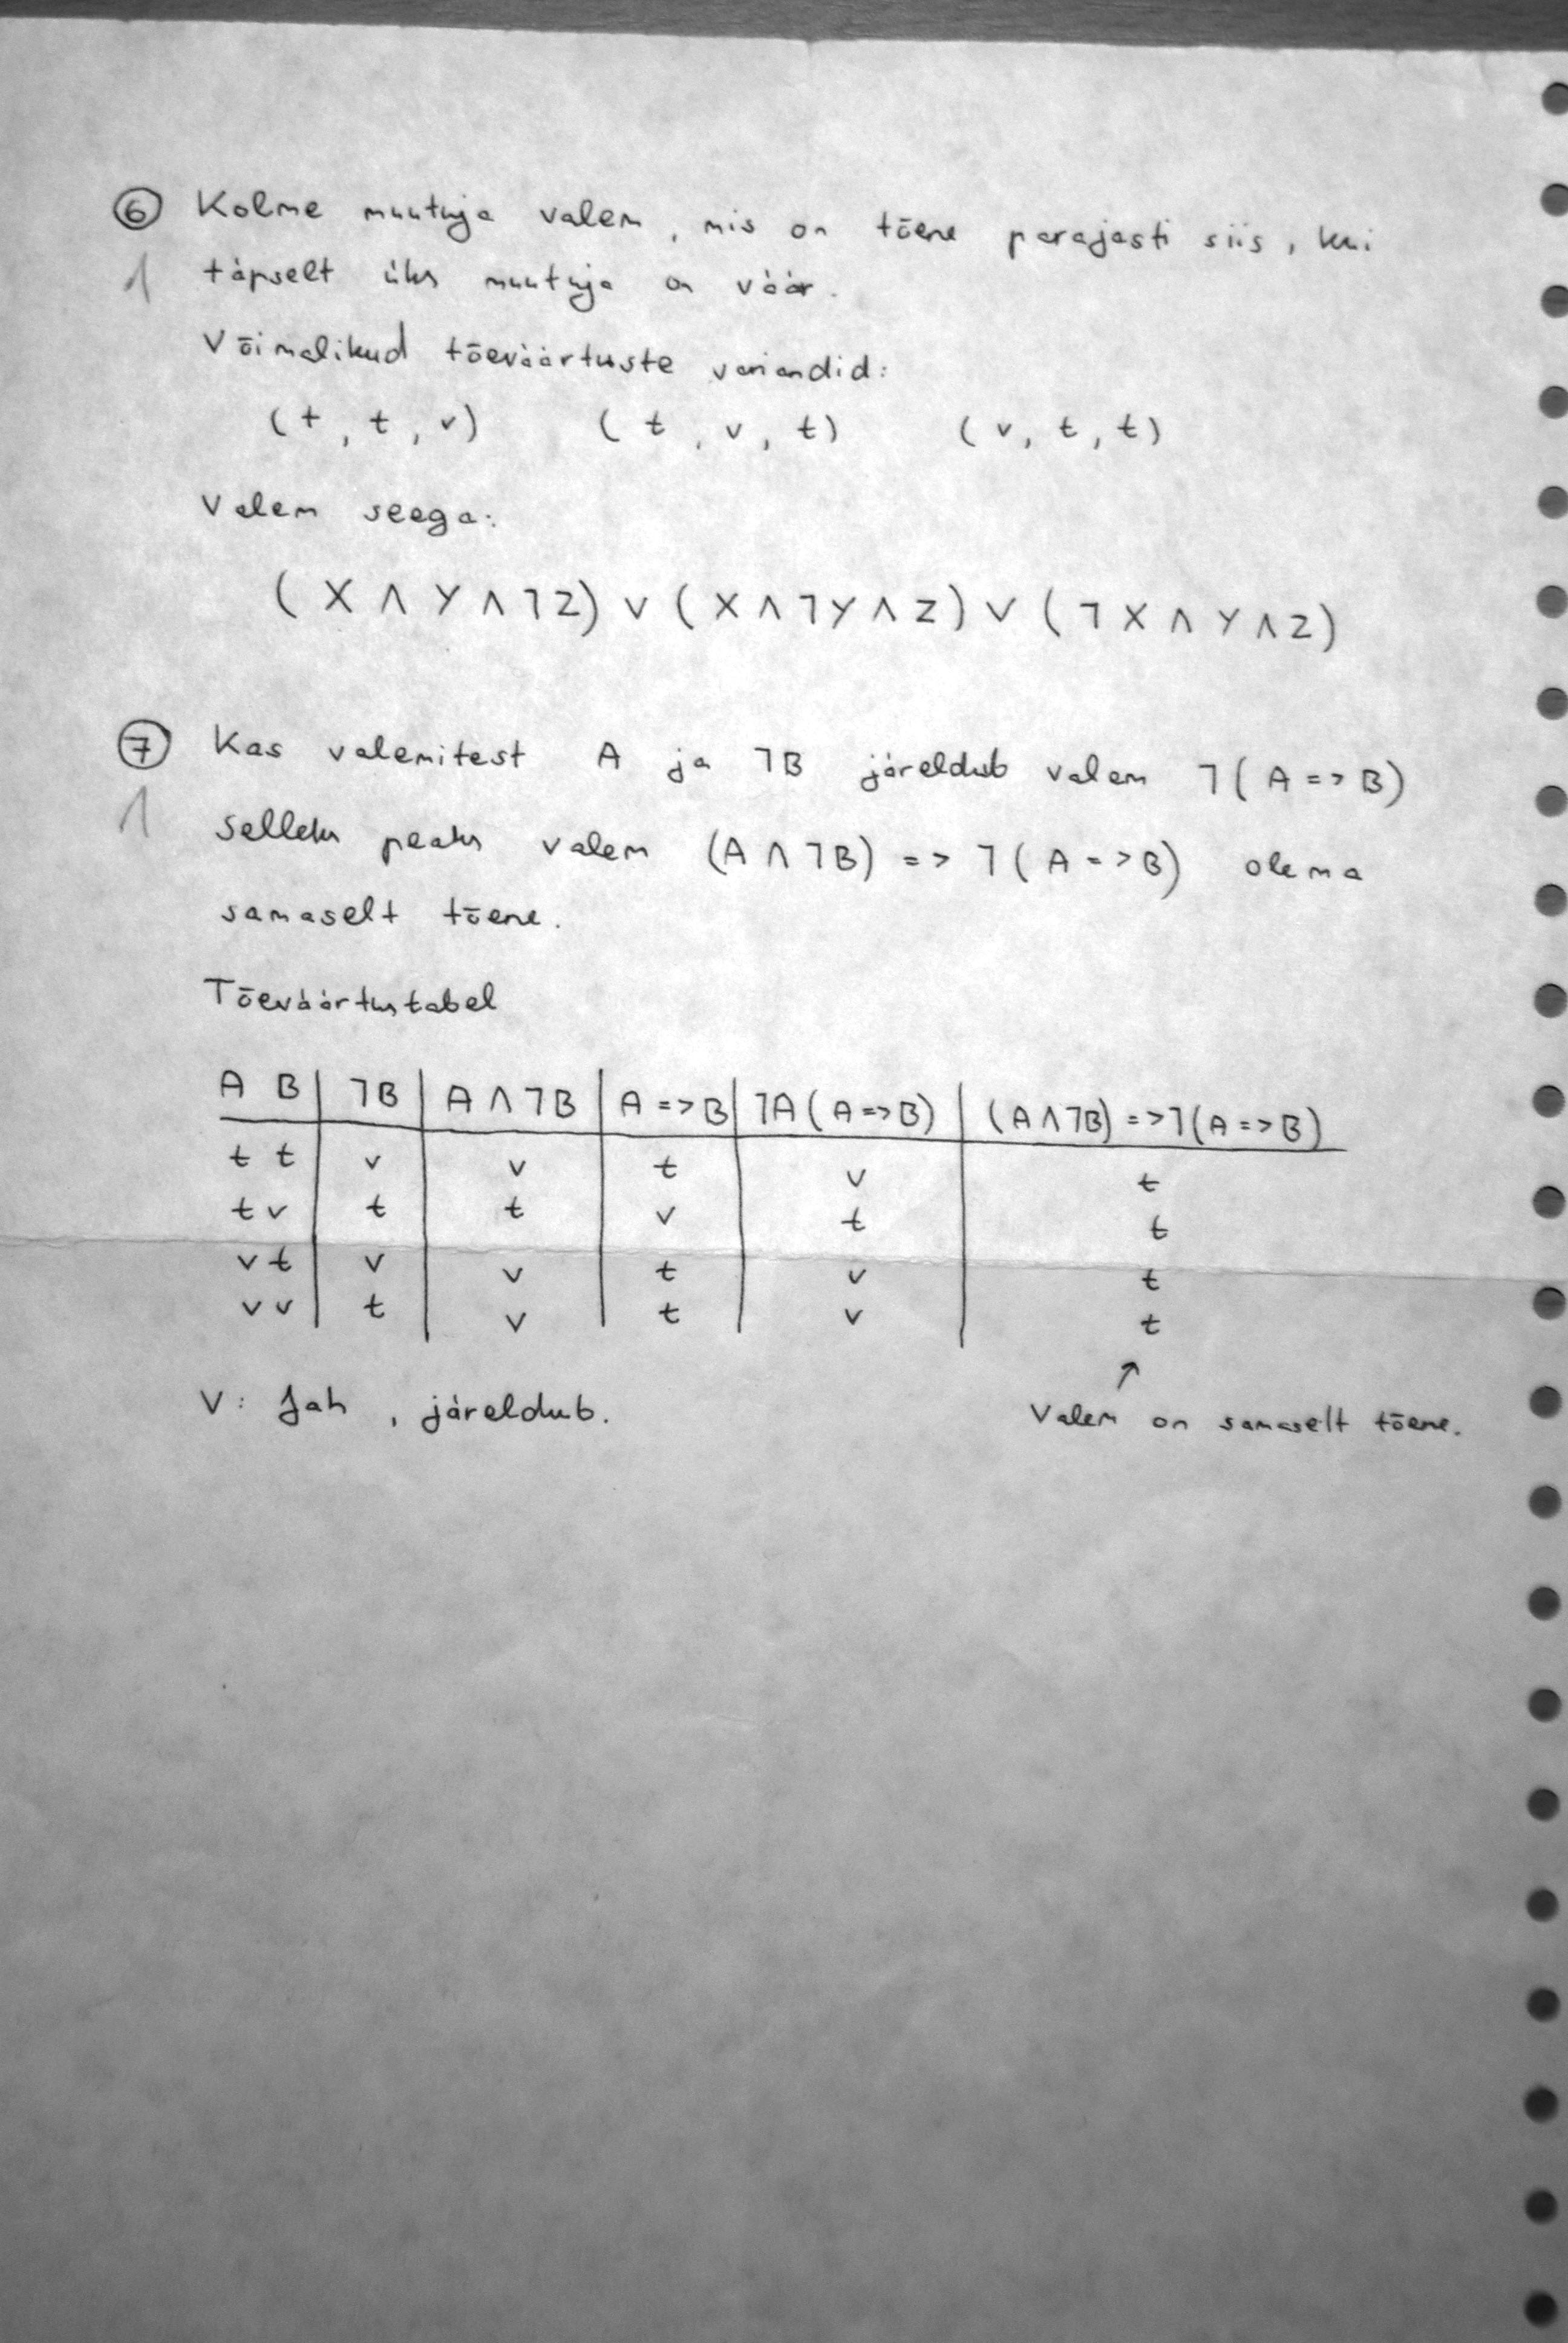 6 Kolme muutuja valem, mis on tõene parajasti siis, kui
1 täpselt üks muutuja on väär.
Võimalikud tõeväärtuste variandid:
(t, t, v) (t, v, t) (v, t, t)
Valem seega:
(X ∧ Y ∧ ¬Z) ∨ (X ∧ ¬Y ∧ Z) ∨ (¬X ∧ Y ∧ Z)
7 Kas valemitest A ja ¬B järeldub valem ¬(A => B)
1 Selleks peaks valem (A ∧ ¬B) => ¬(A => B) olema
samaselt tõene.
Tõeväärtustabel
A B | ¬B | A ∧ ¬B | A => B | ¬A (A => B) | (A ∧ ¬B) => ¬(A => B)
t t | v | v | t | v | t
t v | t | t | v | t | t
v t | v | v | t | v | t
v v | t | v | t | v | t
↑
V: Jah, järeldub. Valem on samaselt tõene.